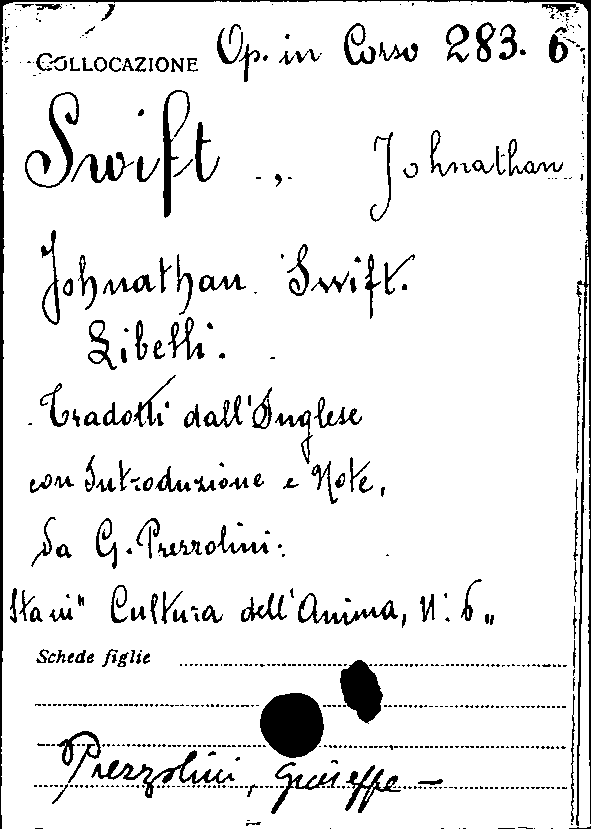 COLLOCAZIONE Op. in Corso 283. 6
Swift., Johnathan
Johnathan Swift.
Libelli.
Tradotti dall'Inglese
con Introduzione e Note,
da G. Prezzolini.
Sta in "Cultura dell'Anima, N. 6"
Schede figlie
Prezzolini, Giuseppe —